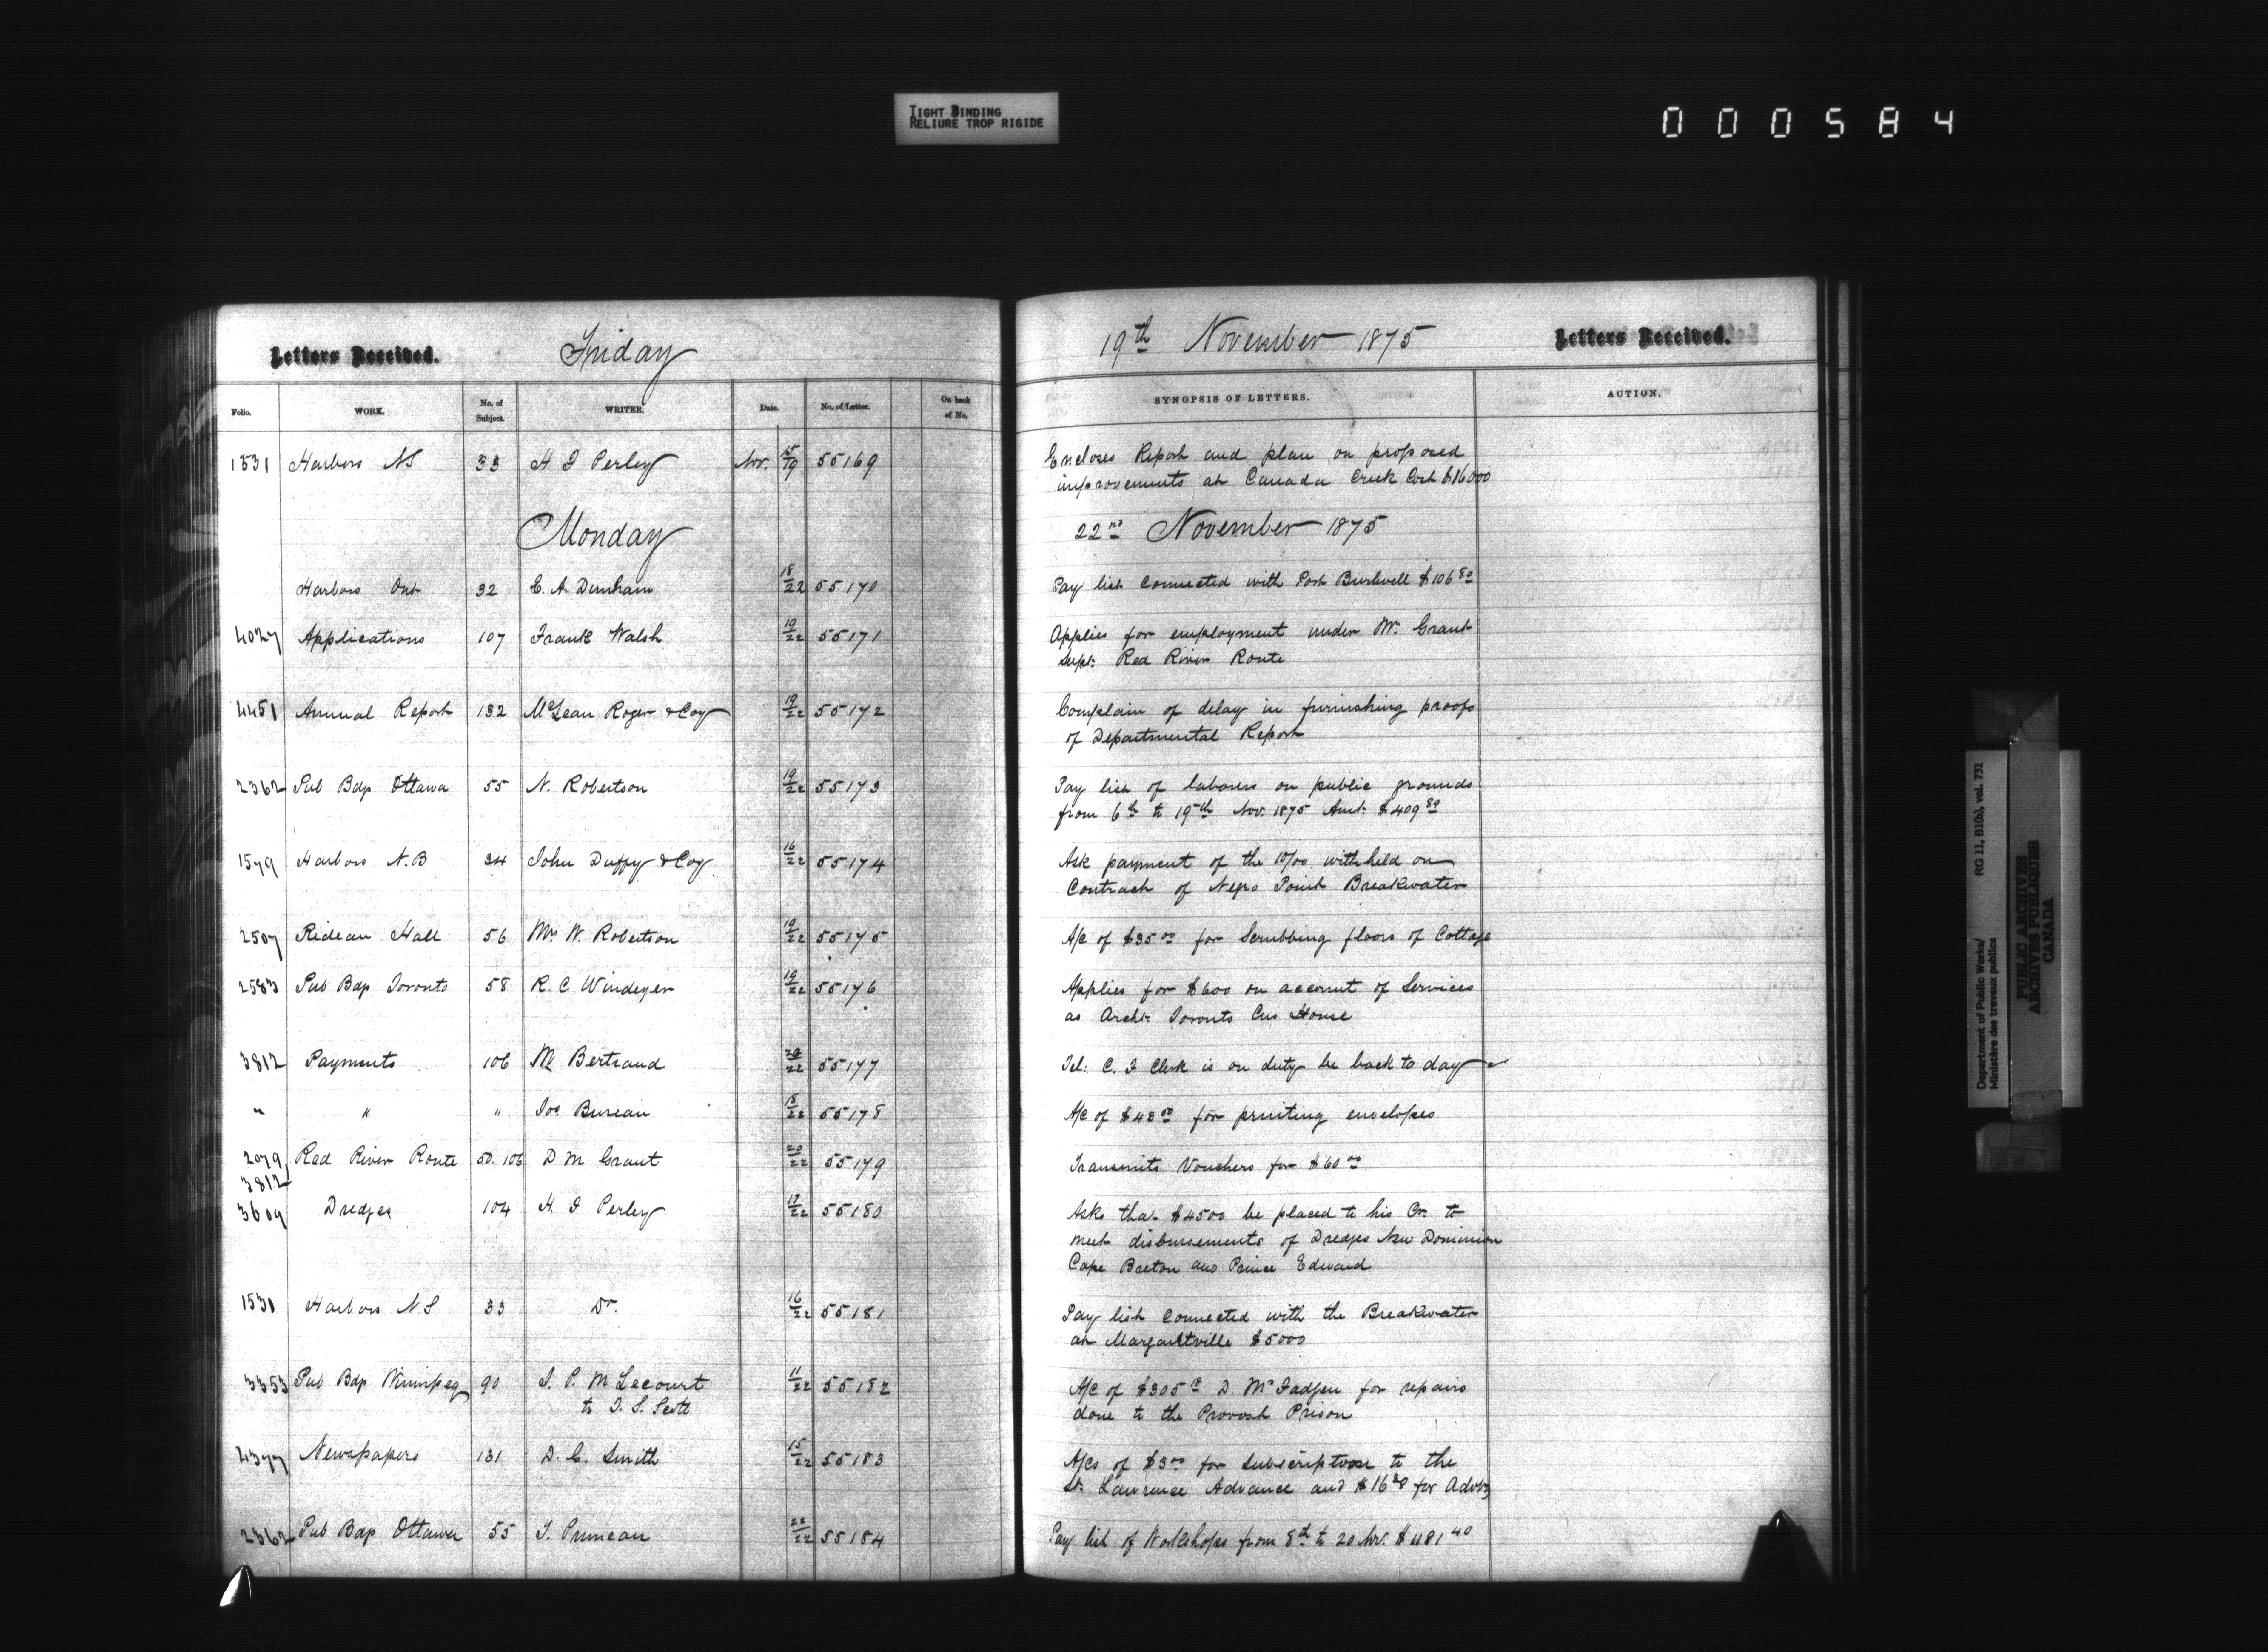 TIGHT BINDING
RELIURE TROP RIGIDE
000584
Letters Received. Friday 19th November 1875 Letters Received.
Folio. WORK. No. of Subject. WRITER. Date. No. of Letter. On back of No. SYNOPSIS OF LETTERS. ACTION.
1531 Harbors NS 33 H F Perley Nov. 15/19 55169 Encloses Report and plan on proposed
improvements at Canada Creek Cost $16000
Monday 22nd November 1875
Harbors Ont 32 E. A. Dunham 18/22 55170 Pay list connected with Port Burwell $106 80
4027 Applications 107 Frank Walsh 19/22 55171 Applies for employment under Mr. Grant
Supt. Red River Route
4451 Annual Report 132 McLean Roger & Coy 19/22 55172 Complain of delay in furnishing proofs
of Departmental Report
2362 Pub Bdgs Ottawa 55 N. Robertson 19/22 55173 Pay list of laborers on public grounds
from 6th to 19th Nov. 1875 Amt. $409 80
1579 Harbors N.B 34 John Duffy & Coy 16/22 55174 Ask payment of the 10/00 withheld on
Contract of Negro Point Breakwater
2507 Rideau Hall 56 Mrs W. Robertson 19/22 55175 A/c of $35 00 for Scrubbing floors of Cottage
2583 Pub Bdgs Toronto 58 R. C Windeyer 19/22 55176 Applies for $600 on account of Services
as Archt. Toronto Cus House
3812 Payments 106 M Bertrand 20/22 55177 Tel: C. J Clerk is on duty be back to day
" " " Jos Bureau 18/22 55178 A/c of $48 00 for printing envelopes
2079 Red River Route 50. 106 D M Grant 20/22 55179 Transmits Vouchers for $60 00
3812
3609 Dredges 104 H. F Perley 17/22 55180 Asks that $4500 be placed to his Cr. to
meet disbursements of Dredges New Dominion
Cape Breton and Prince Edward
1531 Harbors NS 33 Do. 16/22 55181 Pay list connected with the Breakwater
at Margaretville $5000
3353 Pub Bdgs Winnipeg 90 J. P. M Lecourt 11/22 55182 A/c of $305 D. McFadgen for repairs
to T. S. Scott done to the Provost Prison
4377 Newspapers 131 D. G. Smith 15/22 55183 A/cs of $3 00 for Subscription to the
St. Lawrence Advance and $16 for Advtg
2362 Pub Bdgs Ottawa 55 J. Pruneau 22/22 55184 Pay list of Workshops from 8th to 20 Nov. $1181 40
Department of Public Works/ RG 11, B1(b), vol. 731
Ministère des travaux publics
PUBLIC ARCHIVES
ARCHIVES PUBLIQUES
CANADA